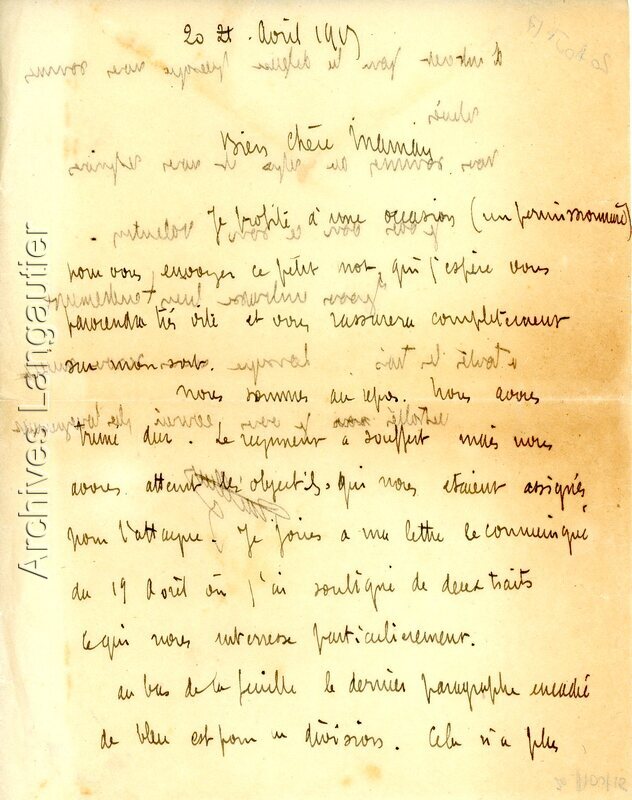 20 21 Avril 1917
Bien chère Maman,
Je profite d'une occasion (un permissionnaire)
pour vous envoyer ce petit mot, qui j'espère vous
parviendra très vite et vous rassurera complètement
sur mon sort.
Nous sommes au repos. Nous avons
trimé dur. Le régiment a souffert mais nous
avons atteint les objectifs qui nous étaient assignés
pour l'attaque. Je joins à ma lettre le communiqué
du 19 Avril où j'ai souligné de deux traits
ce qui nous interresse particulierement.
au bas de la feuille le dernier paragraphe encadré
de bleu est pour la division. Cela n'a plus
Archives Langautier